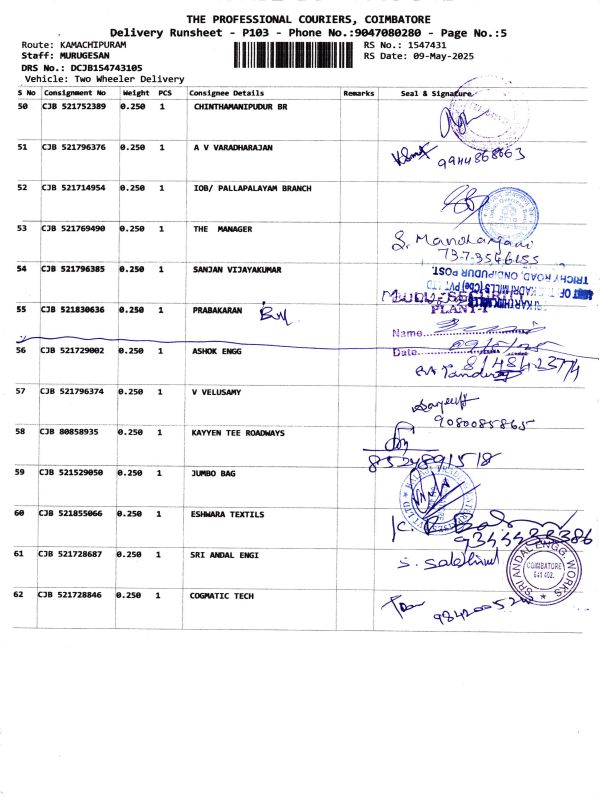 THE PROFESSIONAL COURIERS, COIMBATORE
Delivery Runsheet - P103 - Phone No.:9047080280 - Page No.:5
Route: KAMACHIPURAM RS No.: 1547431
Staff: MURUGESAN RS Date: 09-May-2025
DRS No.: DCJB154743105
Vehicle: Two Wheeler Delivery
S No Consignment No Weight PCS Consignee Details Remarks Seal & Signature
50 CJB 521752389 0.250 1 CHINTHAMANIPUDUR BR
51 CJB 521796376 0.250 1 A V VARADHARAJAN
9944868663
52 CJB 521714954 0.250 1 IOB/ PALLAPALAYAM BRANCH
53 CJB 521769490 0.250 1 THE MANAGER
S. Manoharan
73-7-3546155
54 CJB 521796385 0.250 1 SANJAN VIJAYAKUMAR
TRICHY ROAD, ONDIPUDUR POST,
55 CJB 521830636 0.250 1 PRABAKARAN
PLANT-I
Name
Date 09/5/25
56 CJB 521729002 0.250 1 ASHOK ENGG
8148423774
57 CJB 521796374 0.250 1 V VELUSAMY
9080085865
58 CJB 80858935 0.250 1 KAYYEN TEE ROADWAYS
8524891518
59 CJB 521529050 0.250 1 JUMBO BAG
60 CJB 521855066 0.250 1 ESHWARA TEXTILS
61 CJB 521728687 0.250 1 SRI ANDAL ENGI
SRI ANDAL ENGG. WORKS
COIMBATORE
641 402.
62 CJB 521728846 0.250 1 COGMATIC TECH